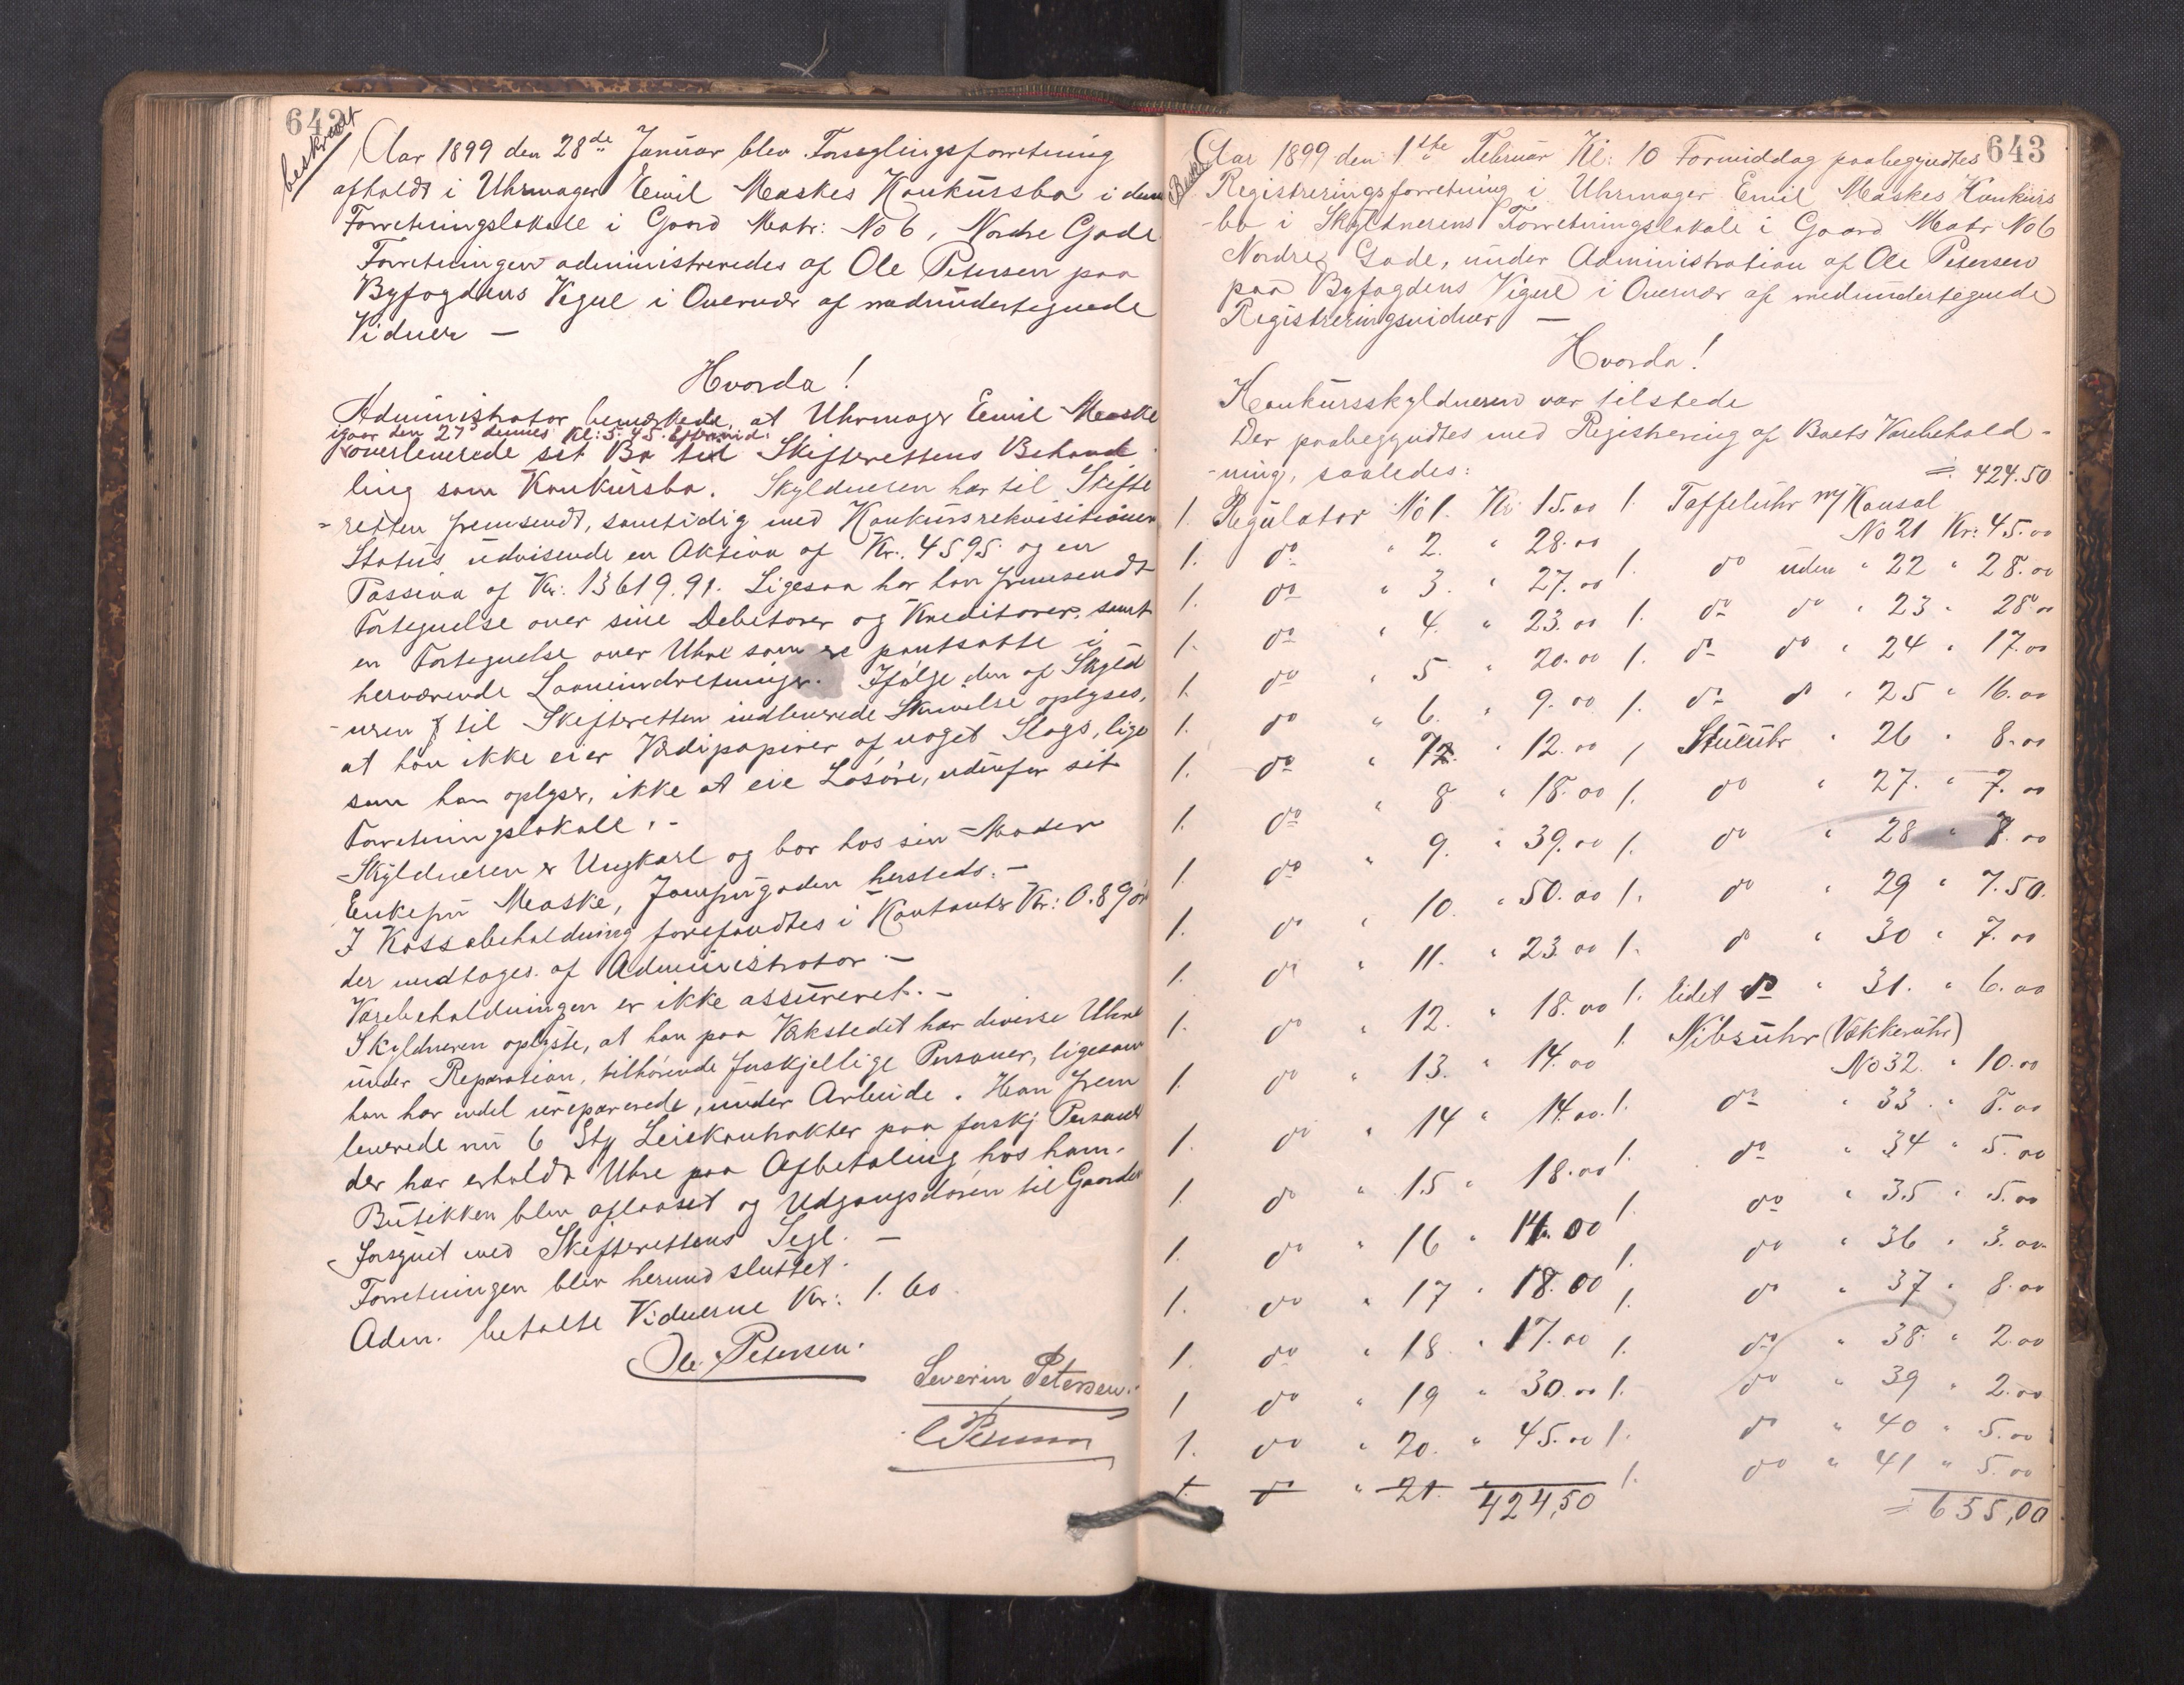 642
beskrevet
Aar 1899 den 28de Januar blev Forseglingsforretning
afholdt i Uhrmager Emil Maskes Konkursbo i dennes
Forretningslokale i Gaard Matr: No 6, Nordre Gade.
Forretningen administreredes af Ole Petersen paa
Byfogdens Vegne i Overvær af medundertegnede
Vidner —
Hvorda!
Administrator bemærkede, at Uhrmager Emil Maske
igaar den 27 dennes Kl: 5.45 Eftermid.
overleverede sit Bo til Skifterettens Behand
ling som Konkursbo. Skyldneren har til Skifte
-retten fremsendt, samtidig med Konkursrekvisitionen
Status udvisende en Aktiva af Kr. 4595 og en
Passiva af Kr: 13619.91. Ligesaa har han fremsendt
Fortegnelse over sine Debitorer og Kreditorer, samt
en Fortegnelse over Uhre som er pantsatte i
herværende Laaneindretninger. Ifølge den af Skyld
-neren til Skifteretten indleverede Skrivelse oplyses,
at han ikke eier Værdipapirer af noget Slags, lige
som han oplyser, ikke at eie Løsøre, udenfor sit
Forretningslokale. -
Skyldneren er Ungkarl og bor hos sin Moder
Enkefru Maske, Jomfrugaden hersteds. —
I Kassabeholdning forefandtes i Kontanter Kr: 0.89 ør
der modtoges af Administrator —
Varebeholdningen er ikke assureret. —
Skyldneren oplyste, at han paa Værkstedet har diverse Uhre
under Reparation, tilhørende forskjellige Personer, ligesom
han har endel ureparerede, under Arbeide. Han frem
leverede nu 6 Stk Leiekontrakter paa forskj. Personer
der har erholdt Uhre paa Afbetaling hos ham.
Butikken blev aflaaset og Udgangsdøren til Gaarden
forsynet med Skifterettens Segl. —
Forretningen blev hermed sluttet.
Adm. betalte Vidnerne Kr: 1.60
Ole Petersen.
Severin Petersen.
643
Aar 1899 den 1ste Februar Kl: 10 Formiddag paabegyndtes
Registreringsforretning i Uhrmager Emil Maskes Konkurs
-bo i Skyldnerens Forretningslokale i Gaard Matr No 6
Nordre Gade, under Administration af Ole Petersen
paa Byfogdens Vegne i Overvær af medundertegnede
Registreringsvidner —
Hvorda!
Konkursskyldneren var tilstede
Der paabegyndtes med Registrering af Boets Varebehold-
-ning, saaledes:
1. Regulator No 1. Kr 15.00
1. do " 2. " 28.00
1. do " 3. " 27.00
1. do " 4. " 23.00
1. do " 5. " 20.00
1. do " 6. " 9.00
1. do " 7. " 12.00
1. do " 8 " 18.00
1. do " 9. " 39.00
1. do " 10. " 50.00
1. do " 11. " 23.00
1. do " 12. " 18.00
1. do " 13. " 14.00
1. do " 14 " 14.00
1. do " 15 " 18.00
1. do " 16 " 14.00
1. do " 17 " 18.00
1. do " 18 " 17.00
1 do " 19 " 30.00
1. do " 20. " 45.00
1. do " 21.
424,50
= 424.50
1. Taffeluhr m/ Konsol
No 21 Kr: 45.00
1. do uden " 22 " 28.00
1. do do " 23 " 28.00
1. do do " 24 " 17.00
1. do do " 25 " 16.00
1 Stueuhr " 26 " 8.00
1. do " 27. " 7.00
1. do " 28 " 7.00
1. do " 29 " 7.50.
1. do " 30 " 7.00
1. lidet do " 31. " 6.00
1 Nipsuhr (Vækkeruhr)
No 32. " 10.00
1. do " 33 " 8.00
1. do " 34 " 5.00
1. do " 35 " 5.00
1. do " 36 " 3.00
1. do " 37 " 8.00
1. do " 38. " 2.00
1. do " 39 " 2.00
1. do " 40 " 5.00
1. do " 41 " 5.00
= 655,00